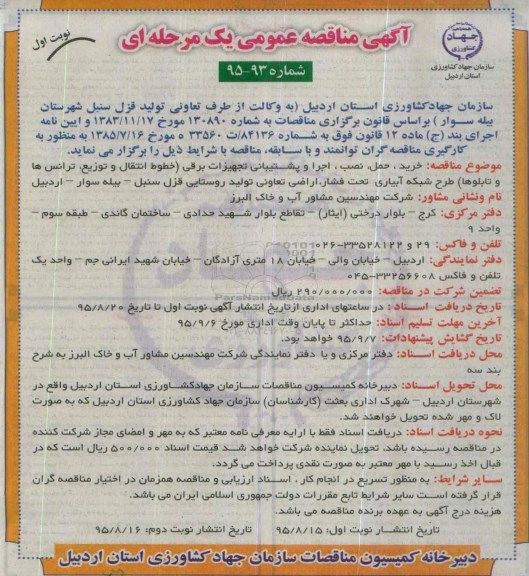 آگهی مناقصه عمومی یک مرحله ای
نوبت اول
شماره ۹۳-۹۵
جهاد
کشاورزی
سازمان جهاد کشاورزی
استان اردبیل
سازمان جهادکشاورزی استان اردبیل (به وکالت از طرف تعاونی تولید قزل سنبل شهرستان
بیله سوار ) براساس قانون برگزاری مناقصات به شماره ۱۳۰۸۹۰ مورخ ۱۳۸۳/۱۱/۱۷ و ایین نامه
اجرای بند (ج) ماده ۱۲ قانون فوق به شماره ۸۴۱۳۶/ت ۳۳۵۶۰ ه مورخ ۱۳۸۵/۷/۱۶ به منظور به
کارگیری مناقصه گران توانمند و با سابقه، مناقصه با شرایط ذیل را برگزار می نماید.
موضوع مناقصه: خرید ، حمل، نصب ، اجرا و پشتیبانی تجهیزات برقی (خطوط انتقال و توزیع، ترانس ها
و تابلوها) طرح شبکه آبیاری تحت فشار،اراضی تعاونی تولید روستایی قزل سنبل – بیله سوار – اردبیل
نام ونشانی مشاور: شرکت مهندسین مشاور آب و خاک البرز
دفتر مرکزی: کرج – بلوار درختی (ایثار) – تقاطع بلوار شهید حدادی – ساختمان گاندی – طبقه سوم –
واحد ۹
تلفن و فاکس: ۲۹ و ۳۳۵۲۸۱۲۲-۰۲۶
دفتر نمایندگی: اردبیل – خیابان والی – خیابان ۱۸ متری آزادگان – خیابان شهید ایرانی جم – واحد یک
تلفن و فاکس ۳۳۲۵۶۶۰۸-۰۴۵
تضمین شرکت در مناقصه: ۲۹۰/۰۰۰/۰۰۰ ریال
تاریخ دریافت اسناد : در ساعتهای اداری ازتاریخ انتشار آگهی نوبت اول تا تاریخ ۹۵/۸/۲۰
آخرین مهلت تسلیم اسناد: حداکثر تا پایان وقت اداری مورخ ۹۵/۹/۶
تاریخ گشایش پیشنهادات: ۹۵/۹/۷ خواهد بود.
محل دریافت اسناد: دفتر مرکزی و یا دفتر نمایندگی شرکت مهندسین مشاور آب و خاک البرز به شرح
بند سه
محل تحویل اسناد: دبیرخانه کمیسیون مناقصات سازمان جهادکشاورزی استان اردبیل واقع در
شهرستان اردبیل – شهرک اداری بعثت (کارشناسان) سازمان جهاد کشاورزی استان اردبیل که به صورت
لاک و مهر شده تحویل خواهند شد.
نحوه دریافت اسناد: دریافت اسناد فقط با ارایه معرفی نامه معتبر که به مهر و امضای مجاز شرکت کننده
در مناقصه رسیده باشد، تحویل نماینده شرکت خواهد شد قیمت اسناد ۵۰۰/۰۰۰ ریال است که در
قبال اخذ رسید با مهر معتبر به صورت نقدی پرداخت می گردد.
سایر شرایط: به منظور تسریع در انجام کار ، اسناد ارزیابی و مناقصه همزمان در اختیار مناقصه گران
قرار گرفته است سایر شرایط تابع مقررات دولت جمهوری اسلامی ایران می باشد.
هزینه درج آگهی به عهده برنده مناقصه می باشد.
تاریخ انتشار نوبت اول: ۹۵/۸/۱۵ تاریخ انتشار نوبت دوم: ۹۵/۸/۱۶
دبیرخانه کمیسیون مناقصات سازمان جهاد کشاورزی استان اردبیل